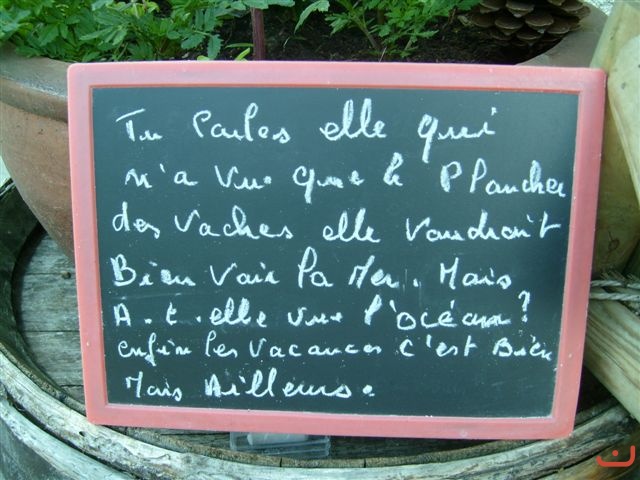 Tu Parles elle qui
n'a vue que le Plancher
des vaches elle voudrait
Bien voir la Mer. Mais
A.t.elle vue l'océan?
enfin les vacances c'est Bien
Mais Ailleurs.